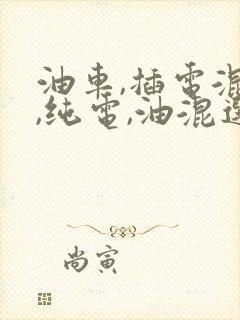 油車,插電混
,純電,油混選
尚寅